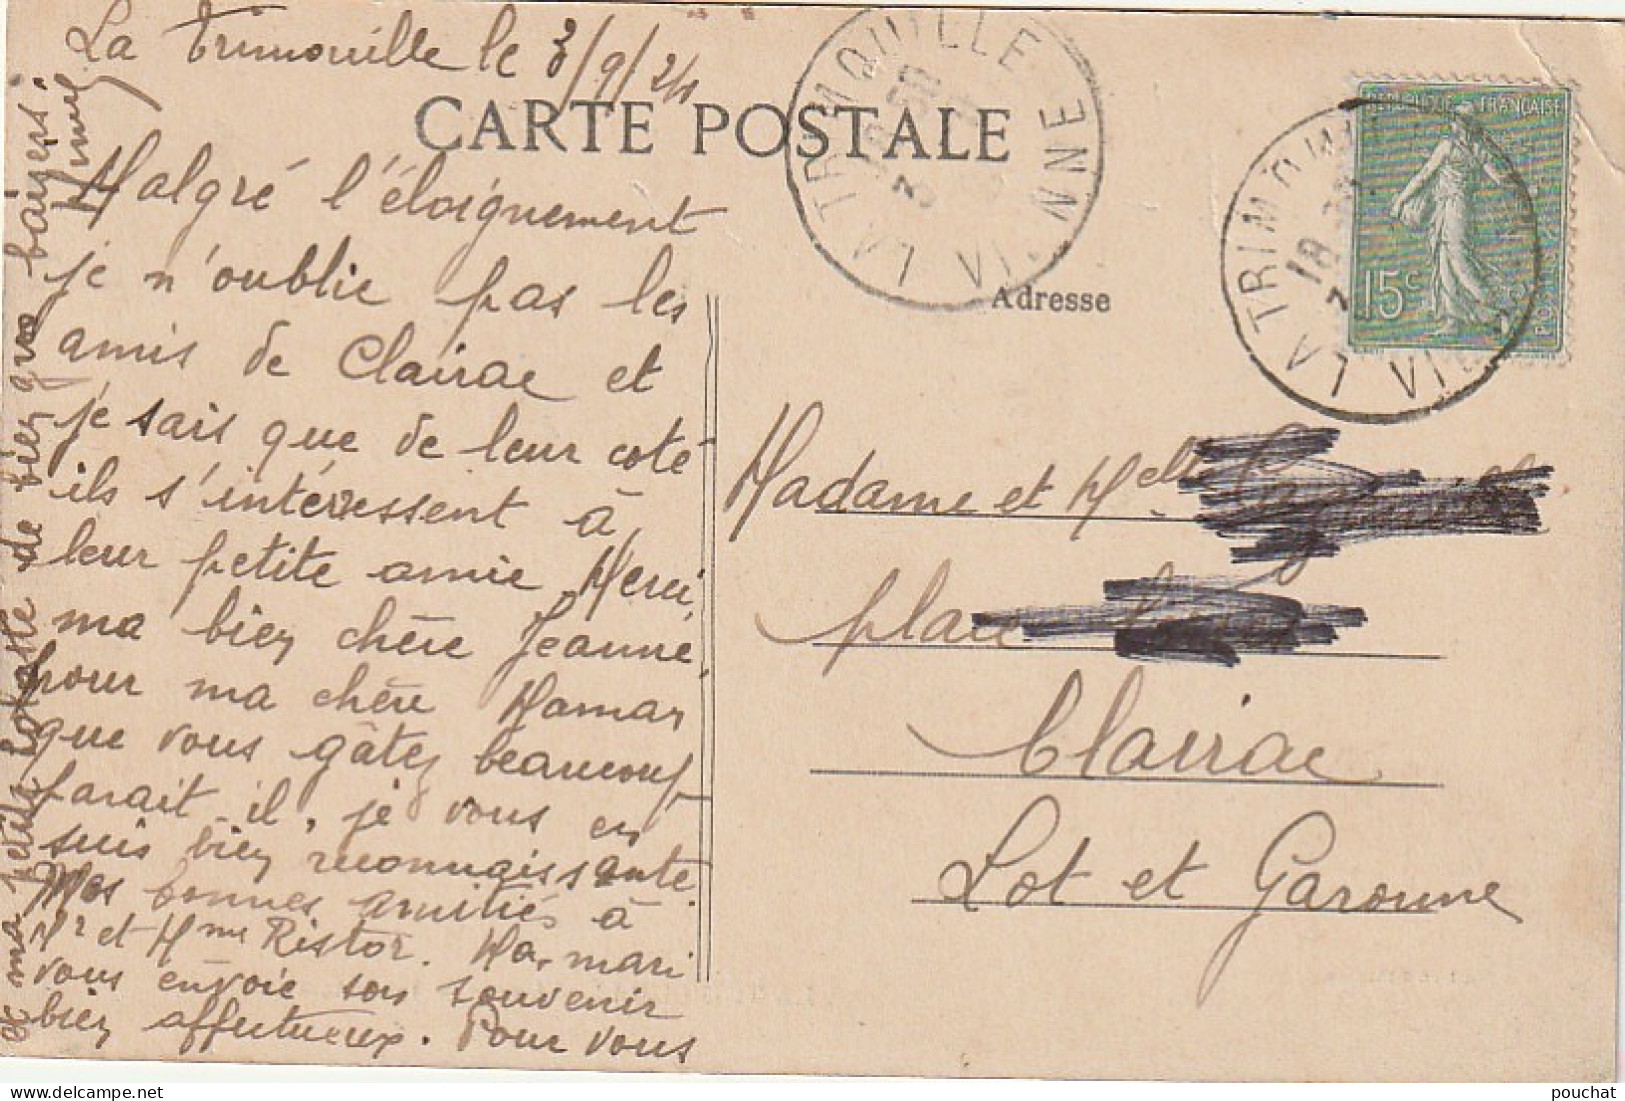 La Trimouille le 3/9/24
CARTE POSTALE
Malgré l'éloignement
je n'oublie pas les
amis de Clairac et
je sais que de leur coté
ils s'intéressent à
leur petite amie Merci,
ma bien chère Jeanne,
pour ma chère Maman
que vous gâtez beaucoup
parait-il, je vous en
suis bien reconnaissante
Mes bonnes amitiés à
Mr et Mme Ristor. Mon mari
vous envoie son souvenir
bien affectueux. Pour vous
et ma petite de bien gros baisers.
LA TRIMOUILLE
VIENNE
REPUBLIQUE FRANÇAISE
15c
LA TRIMOUILLE
18
Adresse
Madame et Melle
place
Clairac
Lot et Garonne
pouchat